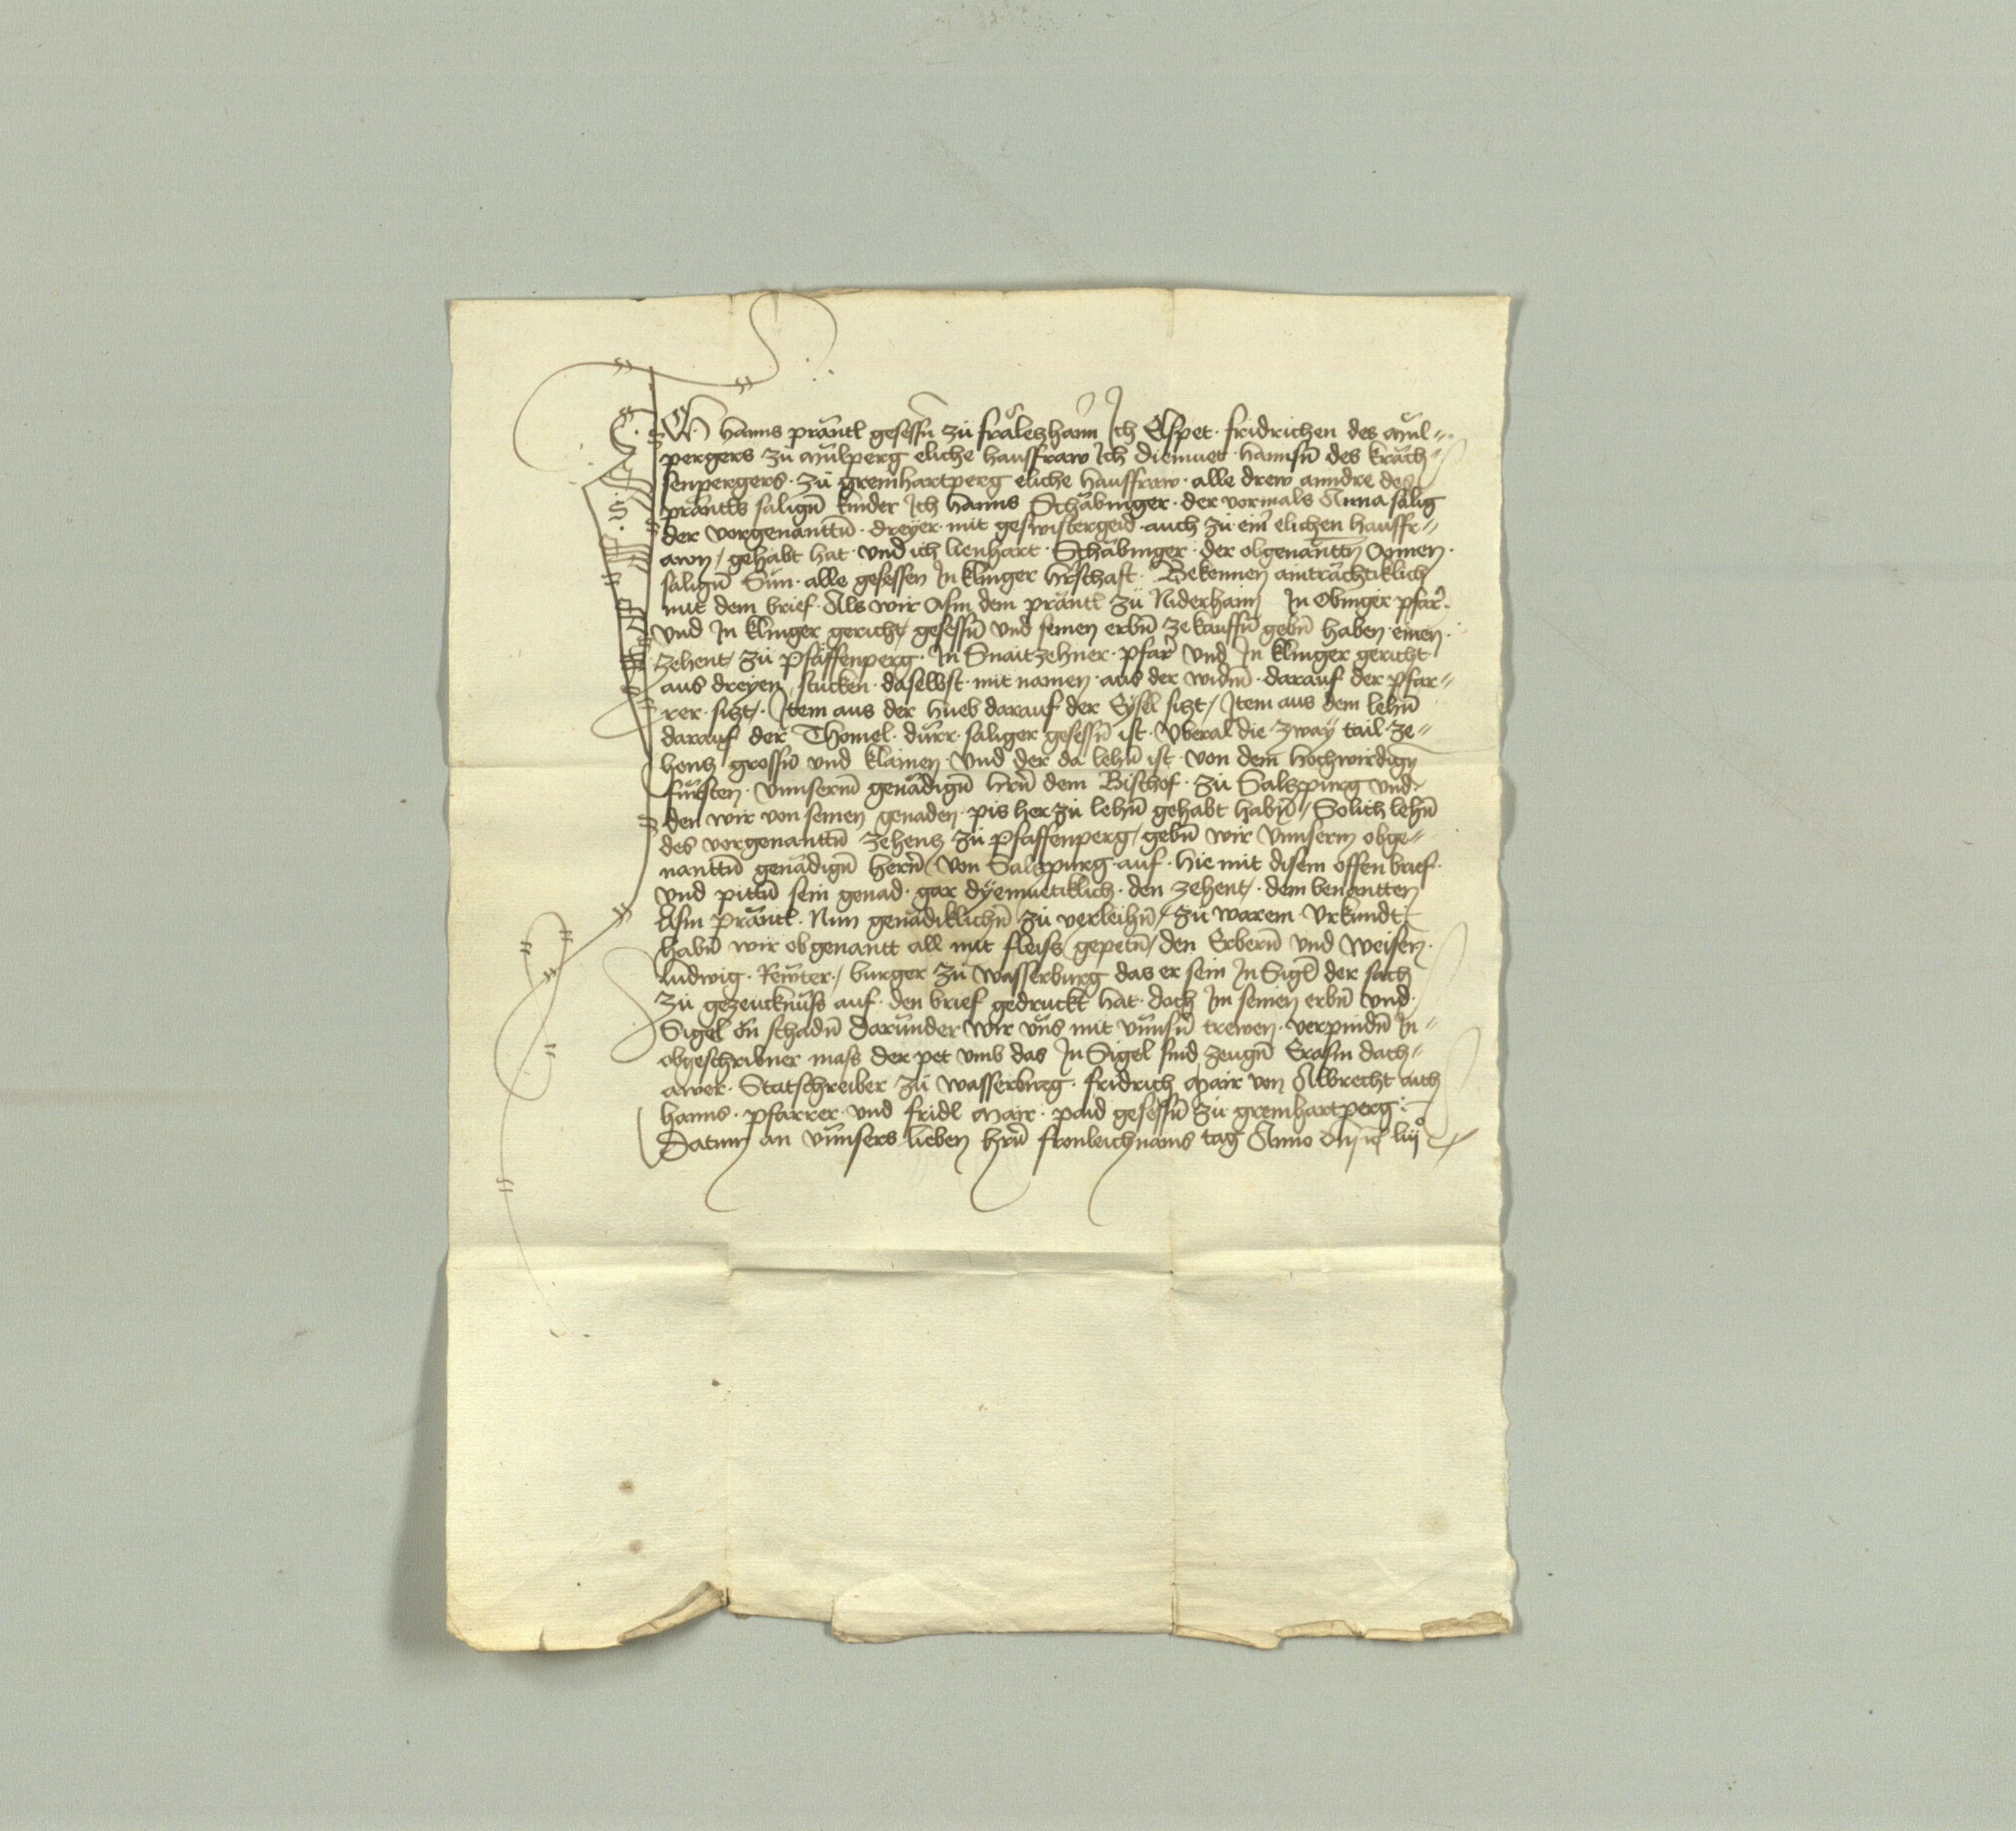 Ich Hanns präntl gesessn̄ zů fräleszhaim Ich Elspet · fridrichen des mül⸗
pergers zů mülperg eliche hausfraw Ich diemuet · hannsn̄ des kräch⸗
senpergers · zů gremhartperg eliche hausfraw · alle drew anndre des
präntls sälign̄ kinder Ich hanns Schäbinger · der vormals Anna sälig
der vorgenanttn̄ · dreyer · mit geswistergeid · auch zů ein̄ elichen hausfr⸗
awn / gehabt hat · vnd ich lienhart · Schäbinger · der obgenanttn̄ Annen ·
sälign̄ Sün · alle gesessen In klinger hr̄schaft · Bekennen ainträchtiklich
mit dem brief · Als wir Asm dem präntl zů Niderhaim In Obinger pfarr ·
vnd In klinger gericht / gesessn̄ vnd seinen erbn̄ ze kauffn̄ gebn̄ haben einen ·
zehent / zů Pfaffenperg · In Snaitzehner · pfarr vnd In klinger gericht
aus dreyen stucken · daselbst · mit namen · aus der widm̄ · darauf der pfar⸗
rer · sizt / · Item aus der hueb darauf der Eysll sizt / Item aus dem lehn̄
darauf der Thomel · dürr · säliger gesessn̄ ist · Vberal die zway tail ze⸗
hens grossn̄ vnd klainen · vnd der da lehn̄ ist · von dem hochwirdign̄
fürsten · vnnserm̄ genädign̄ hrn̄ dem Bischof · zů Salzpurg vnd
den wir von seinen genaden · pis her zů lehn̄ gehabt habn̄ / Solich lehn̄
des vorgenanttn̄ zehens zů Pfaffenperg / gebn̄ wir vnnserm obge⸗
nanttn̄ genädign̄ herrn̄ von Salzpurg · auf · hie mit disem offen brief ·
vnd pittn̄ sein genad · gar dyemuetiklich · den zehent / · dem benantten
Asm präntl · Nun genädiklichn̄ zů verleihn̄ / zů warem Vrkundt
habn̄ wir obgenantt all mit fleiss gepetn̄ / den Erbern̄ vnd Weisen ·
ludwig · Rewter · / burger zů wasserburg das er sein In Sigl̄ der sach
zů gezeucknüss auf · den brief gedruckt hat · doch Im seinen erbn̄ vnd ·
Sigel ön schadn̄ darunder wir vns mit vnnsn̄ trewen · verpindn̄ In⸗
obgeschribner mass der pet vmb das In Sigel sind zeugn̄ Erasm dach⸗
awer · Statschreiber zů wasserburg · fridrich mair von Albrecht aich
hanns · pfarrer · vnd fridl mair · paid gesessn̄ zů gremhartperg ·
Datum an vnnsers lieben hrn̄ fronleichnams tag Anno dn̄i ꝛc liijo